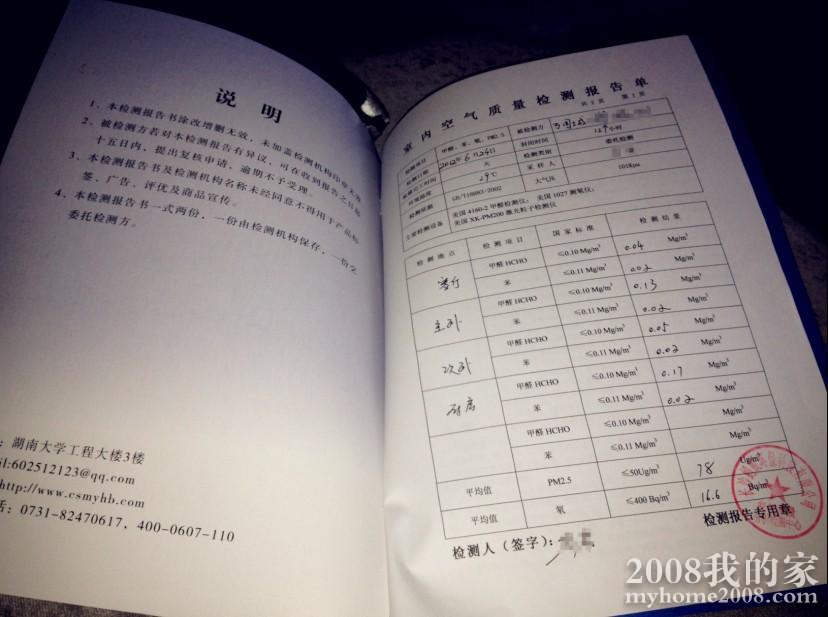 说 明
1、本检测报告书涂改增删无效，未加盖检测机构印章无效
2、被检测方若对本检测报告有异议，可在收到报告之日起
十五日内，提出复核申请，逾期不予受理。
3、本检测报告书及检测机构名称未经同意不得用于产品标
签、广告、评优及商品宣传。
4、本检测报告书一式两份，一份由检测机构保存，一份交
委托检测方。
：湖南大学工程大楼3楼
mail:602512123@qq.com
http://www.csmyhb.com
话：0731-82470617，400-0607-110
室内空气质量检测报告单
共 2 页 第 1 页
检测项目 甲醛、苯、氡、PM2.5 被检测方
检测日期 2012年6月24日 封闭时间 12个小时
检测类别 委托检测
环境温度 29℃ 采样人
检测依据 GB/T18883/2002 大气压 101Kpa
主要检测设备 美国 4160-2 甲醛检测仪; 美国 1027 测氡仪;
美国 XK-PM200 激光粒子检测仪
检测地点 检测项目 国家标准 检测结果
客厅 甲醛 HCHO ≤0.10 Mg/m³ 0.04 Mg/m³
苯 ≤0.11 Mg/m³ 0.02 Mg/m³
主卧 甲醛 HCHO ≤0.10 Mg/m³ 0.13 Mg/m³
苯 ≤0.11 Mg/m³ 0.02 Mg/m³
次卧 甲醛 HCHO ≤0.10 Mg/m³ 0.05 Mg/m³
苯 ≤0.11 Mg/m³ 0.02 Mg/m³
甲醛 HCHO ≤0.10 Mg/m³ 0.17 Mg/m³
苯 ≤0.11 Mg/m³ 0.02 Mg/m³
甲醛 HCHO ≤0.10 Mg/m³ Mg/m³
苯 ≤0.11 Mg/m³ Mg/m³
平均值 PM2.5 ≤50Ug/m³ 78 Ug/m³
平均值 氡 ≤400 Bq/m³ 16.6 Bq/m³
检测人（签字）：
检测报告专用章
2008我的家
myhome2008.com